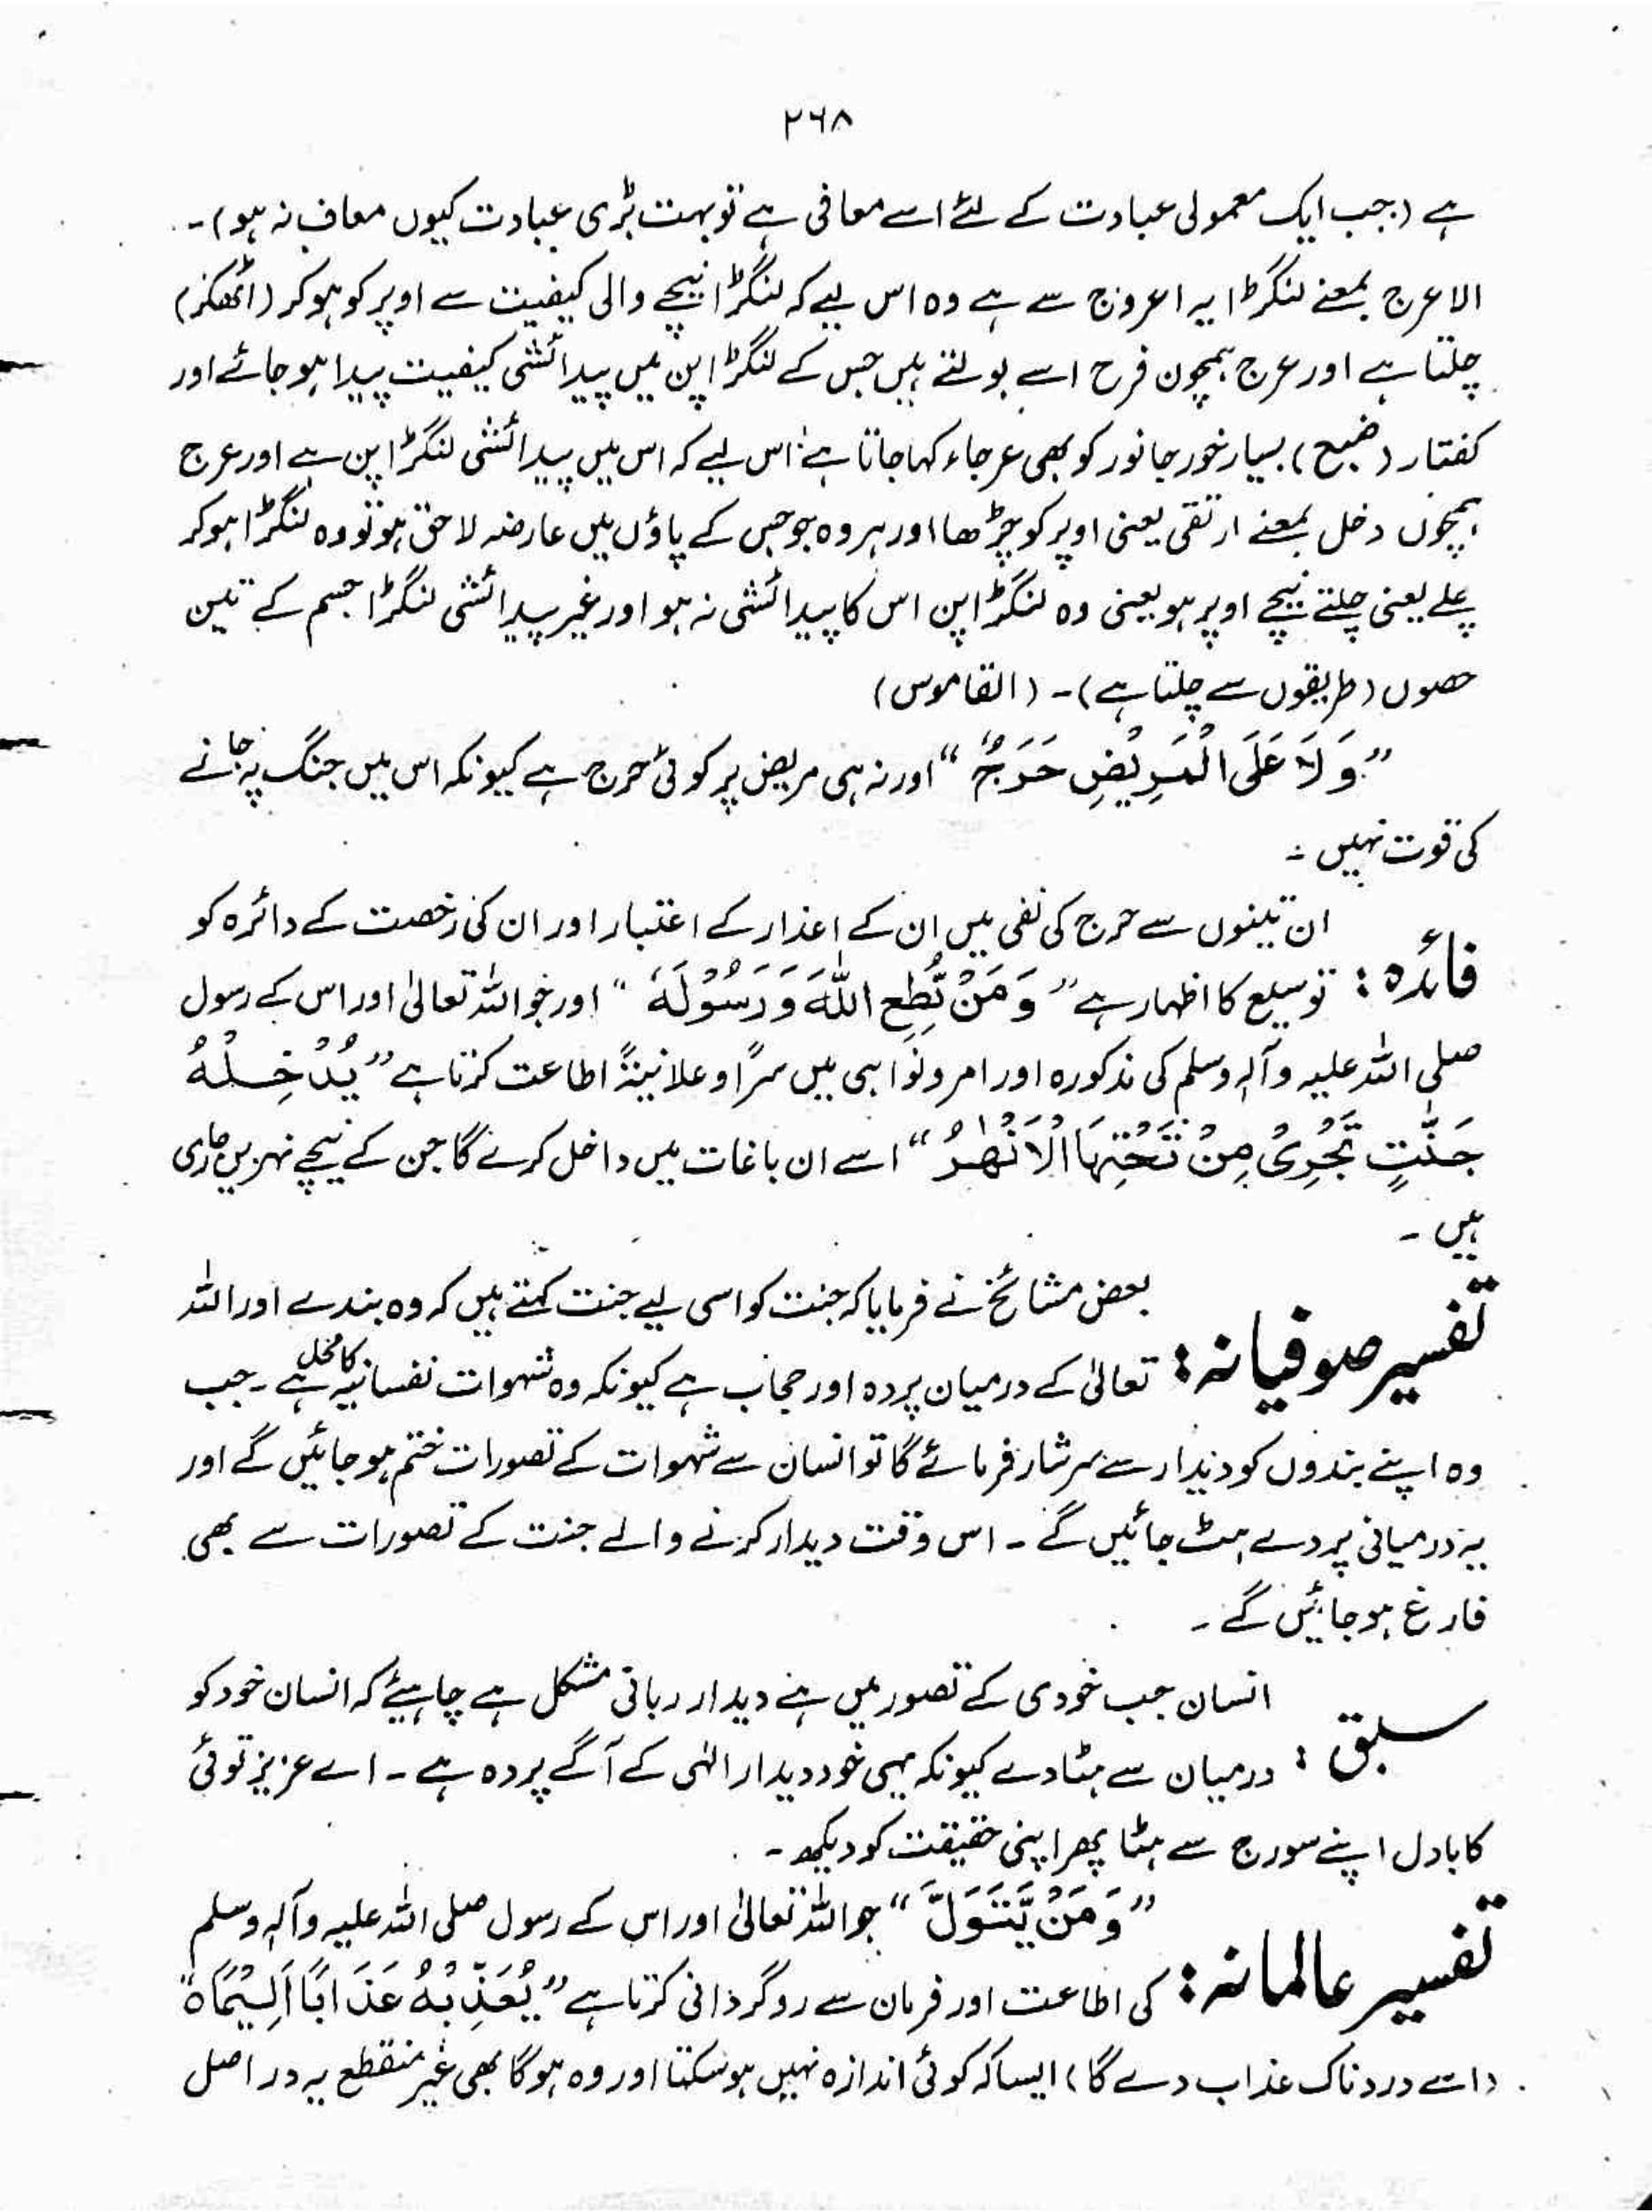 ۲۶۸
ہے (جب ایک معمولی عبادت کے لئے اسے معافی ہے تو بہت بڑی عبادت کیوں معاف نہ ہو)۔
الاعرج بمعنے لنگڑا یہ اعروج سے ہے وہ اس لیے کہ لنگڑا نیچے والی کیفیت سے اوپر کو ہو کر (اٹھکر)
چلتا ہے اور عرج ہمچون فرح اسے بولتے ہیں جس کے لنگڑا پن میں پیدائشی کیفیت پیدا ہو جائے اور
کفتار (ضبع) بسیار خور جانور کو بھی عرجاء کہا جاتا ہے اس لیے کہ اس میں پیدائشی لنگڑا پن ہے اور عرج
ہمچوں دخل بمعنے ارتقی یعنی اوپر کو چڑھا اور ہر وہ جو جس کے پاؤں میں عارضہ لاحق ہو تو وہ لنگڑا ہو کر
چلے یعنی چلتے نیچے اوپر ہو یعنی وہ لنگڑا پن اس کا پیدائشی نہ ہو اور غیر پیدائشی لنگڑا جسم کے تین
حصوں (طریقوں سے چلتا ہے)۔ (القاموس)
”وَلَا عَلَى الْمَرِيْضِ حَرَجٌ“ اور نہ ہی مریض پر کوئی حرج ہے کیونکہ اس میں جنگ پہ جانے
کی قوت نہیں۔
ان تینوں سے حرج کی نفی میں ان کے اعذار کے اعتبار اور ان کی رخصت کے دائرہ کو
فائدہ : توسیع کا اظہار ہے ”وَمَنْ يُّطِعِ اللّٰهَ وَرَسُوْلَهٗ“ اور جو اللہ تعالیٰ اور اس کے رسول
صلی اللہ علیہ وآلہ وسلم کی مذکورہ اور امر و نواہی میں سرًا و علانیۃً اطاعت کرتا ہے ”يُدْخِلْهُ
جَنّٰتٍ تَجْرِىْ مِنْ تَحْتِهَا الْاَنْهٰرُ“ اسے ان باغات میں داخل کرے گا جن کے نیچے نہریں جاری
ہیں۔
بعض مشائخ نے فرمایا کہ جنت کو اسی لیے جنت کہتے ہیں کہ وہ بندے اور اللہ
تفسیر صوفیانہ : تعالیٰ کے درمیان پردہ اور حجاب ہے کیونکہ وہ شہوات نفسانیہ کا محل ہے۔ جب
وہ اپنے بندوں کو دیدار سے سرشار فرمائے گا تو انسان سے شہوات کے تصورات ختم ہو جائیں گے اور
یہ درمیانی پردے ہٹ جائیں گے۔ اس وقت دیدار کرنے والے جنت کے تصورات سے بھی
فارغ ہو جائیں گے۔
انسان جب خودی کے تصور میں ہے دیدار ربانی مشکل ہے چاہیئے کہ انسان خود کو
سبق : درمیان سے ہٹا دے کیونکہ یہی خود دیدار الٰہی کے آگے پردہ ہے۔ اے عزیز توئی
کا بادل اپنے سورج سے ہٹا پھر اپنی حقیقت کو دیکھ۔
”وَمَنْ يَّتَوَلَّ“ جو اللہ تعالیٰ اور اس کے رسول صلی اللہ علیہ وآلہ وسلم
تفسیر عالمانہ : کی اطاعت اور فرمان سے روگردانی کرتا ہے ”يُعَذِّبْهُ عَذَابًا اَلِيْمًا ۃ
(اسے دردناک عذاب دے گا) ایسا کہ کوئی اندازہ نہیں ہو سکتا اور وہ ہوگا بھی غیر منقطع یہ در اصل